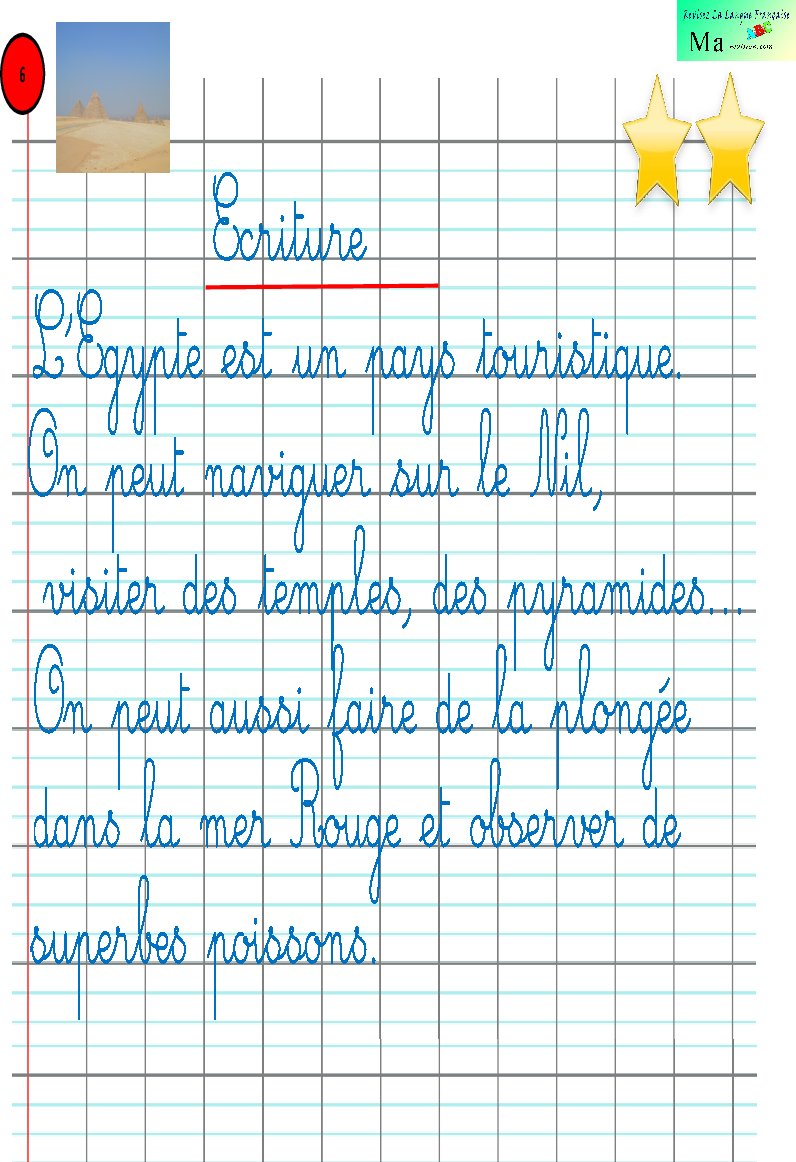 6
Revisez La Langue Française
Ma
revision.com
Ecriture
L'Egypte est un pays touristique.
On peut naviguer sur le Nil,
visiter des temples, des pyramides...
On peut aussi faire de la plongée
dans la mer Rouge et observer de
superbes poissons.